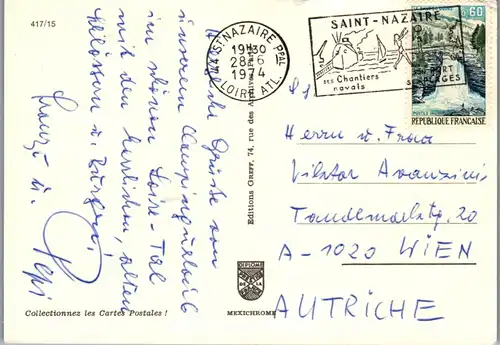 417/15
Herzliche Grüße von
unserem Campingurlaub
im schönen Loire-Tal
mit den herrlichen, alten
Schlössern u. Burgen!
Franzi u.
Pepi
Collectionnez les Cartes Postales !
Editions Greff, 74, rue des
DIPLOME
MEXICHROME
44 ST NAZAIRE PPAL
19H30
28-6
1974
LOIRE ATL.
SAINT-NAZAIRE
SES Chantiers
navals
PORT
0,60
REPUBLIQUE FRANÇAISE
Herrn u. Frau
Viktor Avanzini
Tandelmarktg. 20
A-1020 WIEN
AUTRICHE